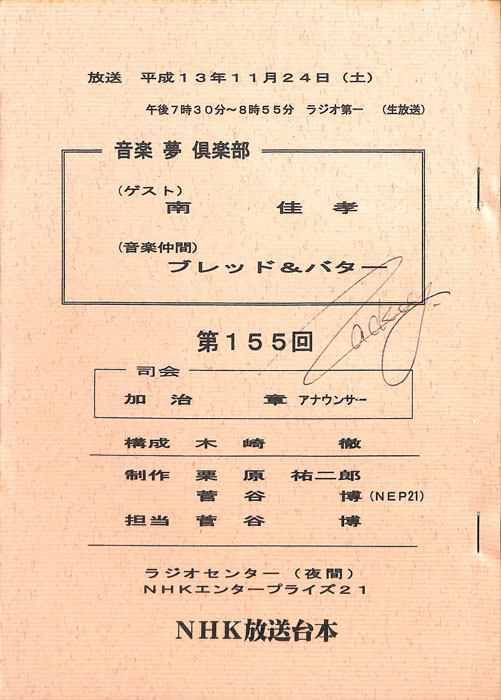 放送 平成13年11月24日（土）
午後7時30分～8時55分 ラジオ第一 （生放送）
音楽 夢 倶楽部
（ゲスト）
南 佳 孝
（音楽仲間）
ブレッド＆バター
第155回
司会
加 治 章 アナウンサー
構成 木 崎 徹
制作 栗 原 祐二郎
菅 谷 博（NEP21）
担当 菅 谷 博
ラジオセンター（夜間）
NHKエンタープライズ21
NHK放送台本